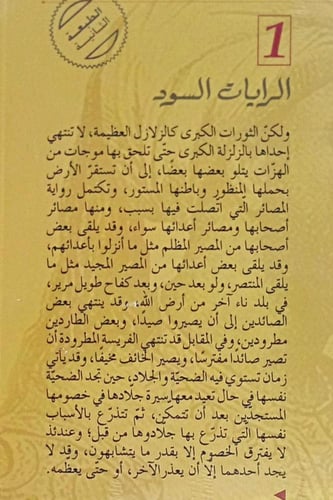 الطبعة
الثانية
1
الرايات السود
ولكنّ الثورات الكبرى كالزلازل العظيمة، لا تنتهي
إحداها بالزلزلة الكبرى حتى تلحق بها موجات من
الهزّات يتلو بعضها بعضًا، إلى أن تستقرّ الأرض
بحملها المنظور وباطنها المستور، وتكتمل رواية
المصائر التي اتّصلت فيها بسبب، ومنها مصائر
أصحابها ومصائر أعدائها سواء، وقد يلقى بعض
أصحابها من المصير المظلم مثل ما أنزلوا بأعدائهم،
وقد يلقى بعض أعدائها من المصير المجيد مثل ما
يلقى المنتصر، ولو بعد حين، وبعد كفاح طويل مرير،
في بلد ناء آخر من أرض الله، وقد ينتهي بعض
الصائدين إلى أن يصيروا صيدًا، وبعض الطاردين
مطرودين، وفي المقابل قد تنتهي الفريسة المطرودة أن
تصير صائدا مفترسًا، ويصير الخائف مخيفًا، وقد يأتي
زمان تستوي فيه الضحيّة والجلاد، حين تجد الضحيّة
نفسها في حال تعيد معها سيرة جلادها في خصومها
المستجدّين بعد أن تتمكّن، ثمّ تتذرّع بالأسباب
نفسها التي تذرّع بها جلادوها من قبل؛ وعندئذ
لا يفترق الخصوم إلا بقدر ما يتشابهون، وقد لا
يجد أحدهما إلا أن يعذر الآخر، أو حتى يعظمه.